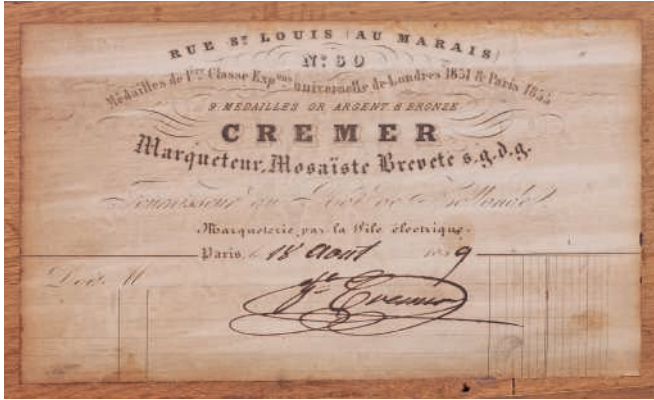 RUE ST LOUIS (AU MARAIS)
No: 50
Médailles de 1ère Classe Expons universelle de Londres 1851 & Paris 1855
9 MEDAILLES OR ARGENT & BRONZE
CREMER
Marqueteur, Mosaïste Breveté s.g.d.g.
Fournisseur du Roi de la Hollande
Marqueterie par la Pile électrique.
Paris, le 18 Aout 1859
Doit M
Je Cremer